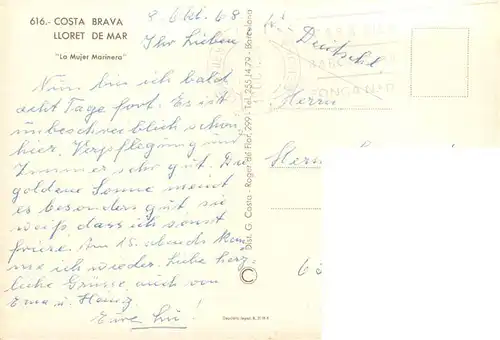 616.- COSTA BRAVA
LLORET DE MAR
"La Mujer Marinera"
9. Okt. 68
Ihr Lieben
Nun bin ich bald
acht Tage fort. Es ist
unbeschreiblich schön
hier. Verpflegung und
Zimmer sehr gut. Die
goldene Sonne meint
es besonders gut sie
weiß, dass ich sonst
friere. Am 15. abends kom-
me ich wieder. Liebe herz-
liche Grüsse auch von
Erna u. Heinz.
Eure
Dist. G. Costa - Roger de Flor, 299 - Tel. 255.14.79 - Barcelona
Herrn